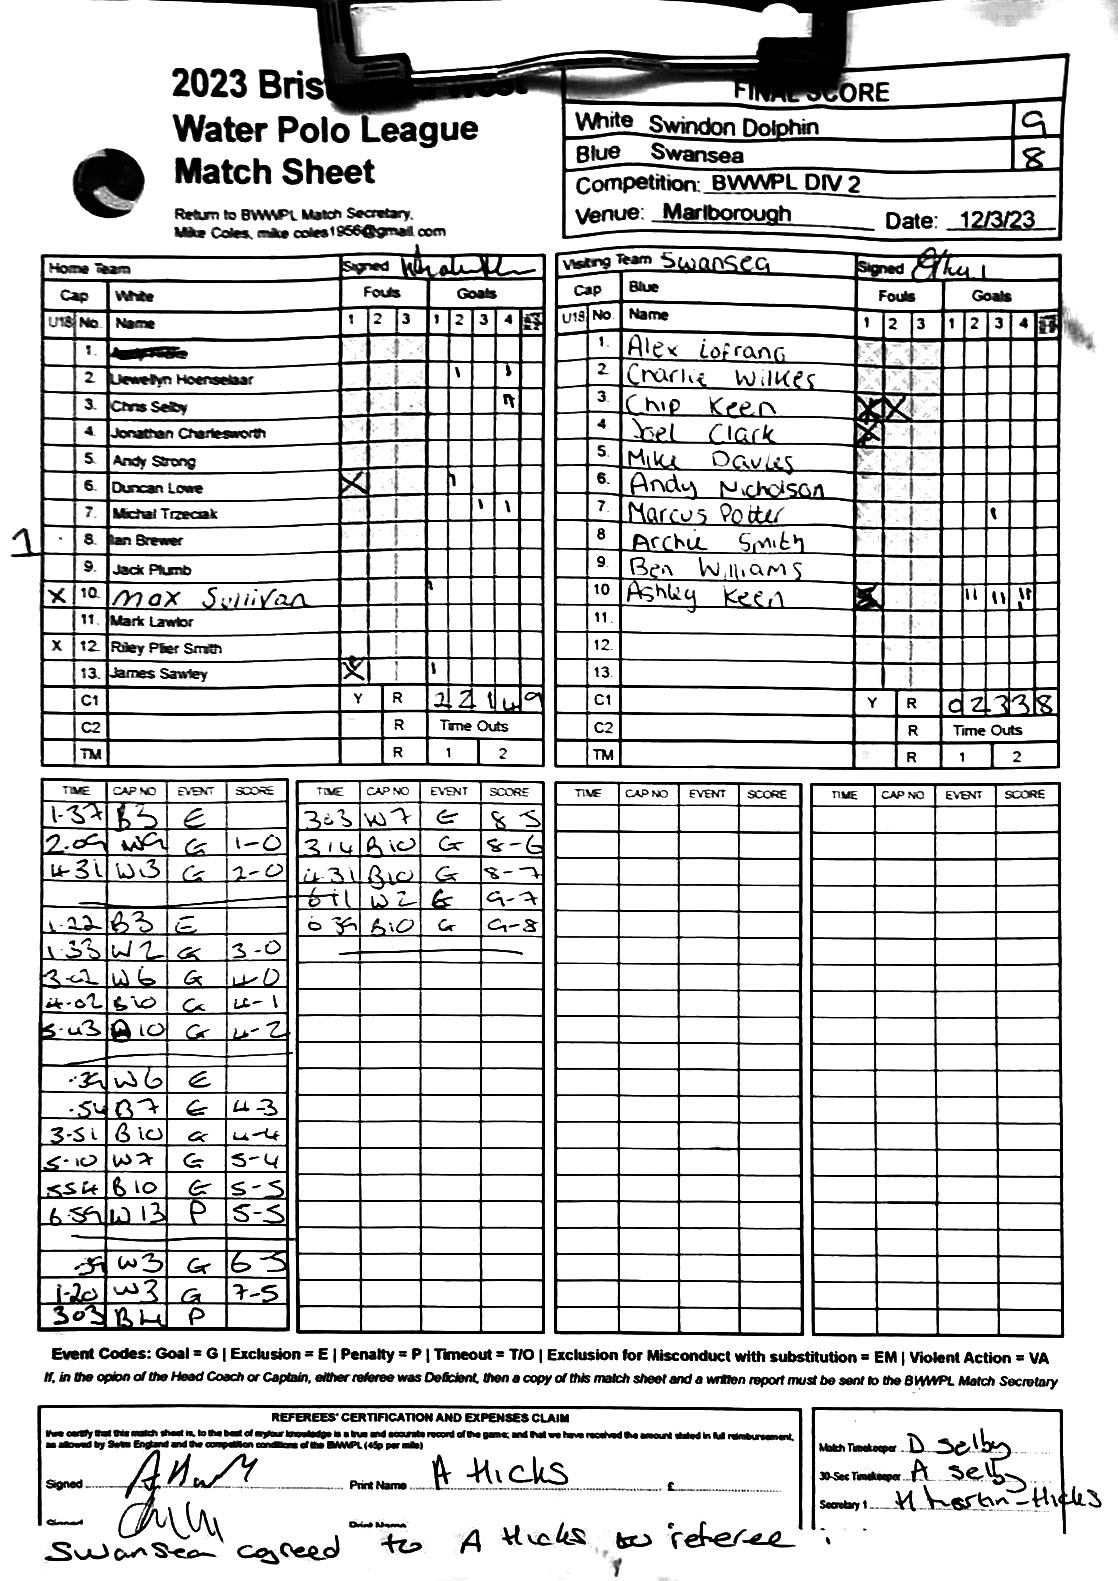 2023 Bris
Water Polo League
Match Sheet
Return to BWWPL Match Secretary,
Mike Coles, mike coles1956@gmail.com
FINAL SCORE
White Swindon Dolphin 9
Blue Swansea 8
Competition: BWWPL DIV 2
Venue: Marlborough Date: 12/3/23
Home Team Signed
Cap White Fouls Goals
U18 No. Name 1 2 3 1 2 3 4
1.
2. Llewellyn Hoenselaar
3. Chris Selby
4. Jonathan Charlesworth
5. Andy Strong
6. Duncan Lowe X
7. Michal Trzeciak
1 8. Ian Brewer
9. Jack Plumb
X 10. Max Sullivan
11. Mark Lawlor
X 12. Riley Plier Smith
13. James Sawley X
C1 Y R 2 2 1 4 9
C2 R Time Outs
TM R 1 2
Visiting Team Swansea Signed
Cap Blue Fouls Goals
U18 No. Name 1 2 3 1 2 3 4
1. Alex Lofrano
2. Charlie Wilkes
3. Chip Keen X X
4 Joel Clark X
5. Mike Davies
6. Andy Nicholson
7. Marcus Potter
8 Archie Smith
9. Ben Williams
10 Ashley Keen
11.
12.
13.
C1 Y R 0 2 3 3 8
C2 R Time Outs
TM R 1 2
TIME CAP NO EVENT SCORE
1-37 B3 E
2.09 W9 G 1-0
4-31 W13 G 2-0
1-22 B3 E
1-33 W2 G 3-0
3-02 W6 G 4-0
4-02 B10 G 4-1
5-43 B10 G 4-2
.39 W6 E
.54 B7 G 4-3
3-51 B10 G 4-4
5-10 W7 G 5-4
554 B10 G 5-5
6-59 W13 P 5-5
.39 W3 G 6-5
1-20 W3 G 7-5
303 B4 P
TIME CAP NO EVENT SCORE
303 W7 G 8-5
314 B10 G 8-6
431 B10 G 8-7
611 W2 G 9-7
639 B10 G 9-8
TIME CAP NO EVENT SCORE
TIME CAP NO EVENT SCORE
Event Codes: Goal = G | Exclusion = E | Penalty = P | Timeout = T/O | Exclusion for Misconduct with substitution = EM | Violent Action = VA
If, in the opion of the Head Coach or Captain, either referee was Deficient, then a copy of this match sheet and a written report must be sent to the BWWPL Match Secretary
REFEREES' CERTIFICATION AND EXPENSES CLAIM
I/we certify that this match sheet is, to the best of my/our knowledge is a true and accurate record of the game; and that we have received the amount stated in full reimbursement,
as allowed by Swim England and the competition conditions of the BWWPL (45p per mile)
Signed Print Name A Hicks £
Signed Print Name
Match Timekeeper D Selby
30-Sec Timekeeper A Selby
Secretary 1 H Martin-Hicks
Swansea agreed to A Hicks to referee